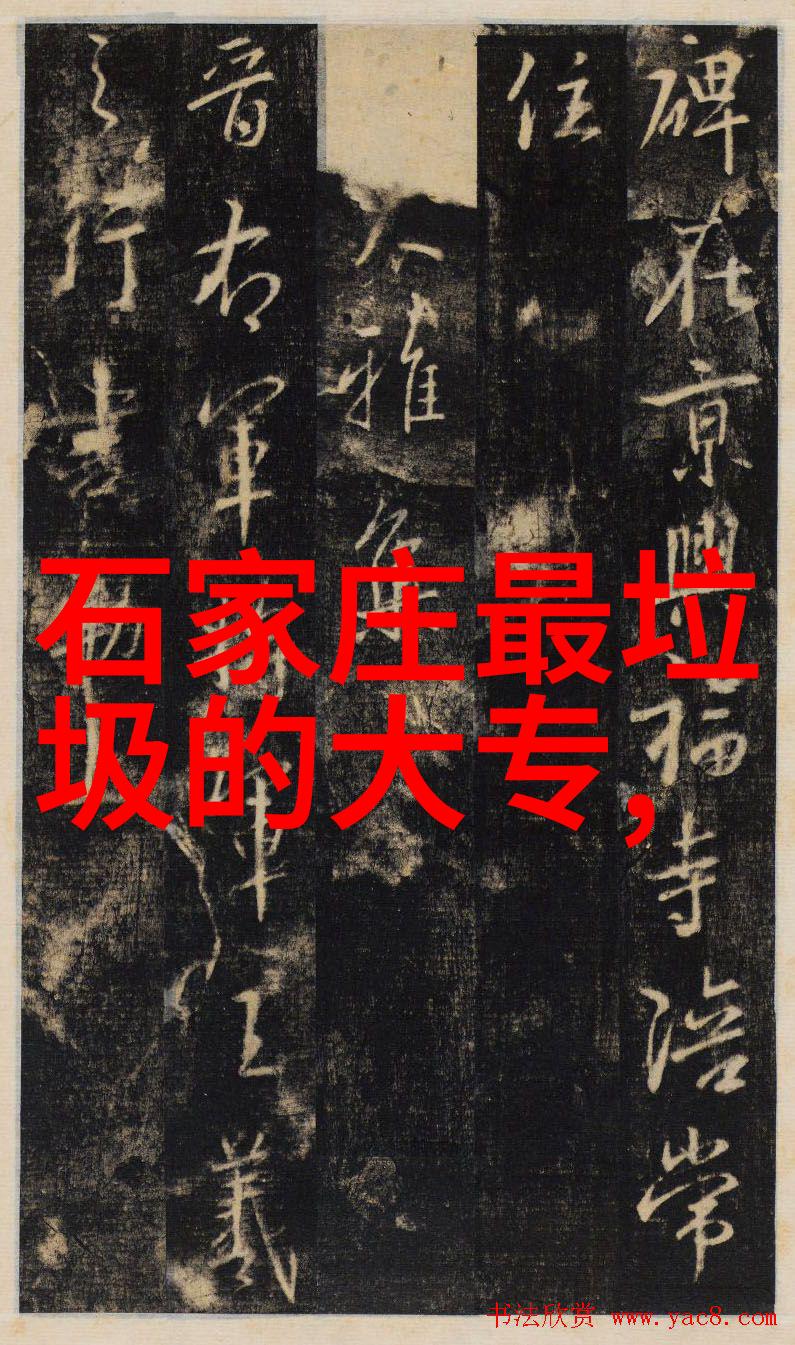 碑在京興福寺陪常
住
大雅集
晉右軍將軍王羲
之行書勒
石家庄最垃
圾的大专,
书法欣赏 www.yac8.com